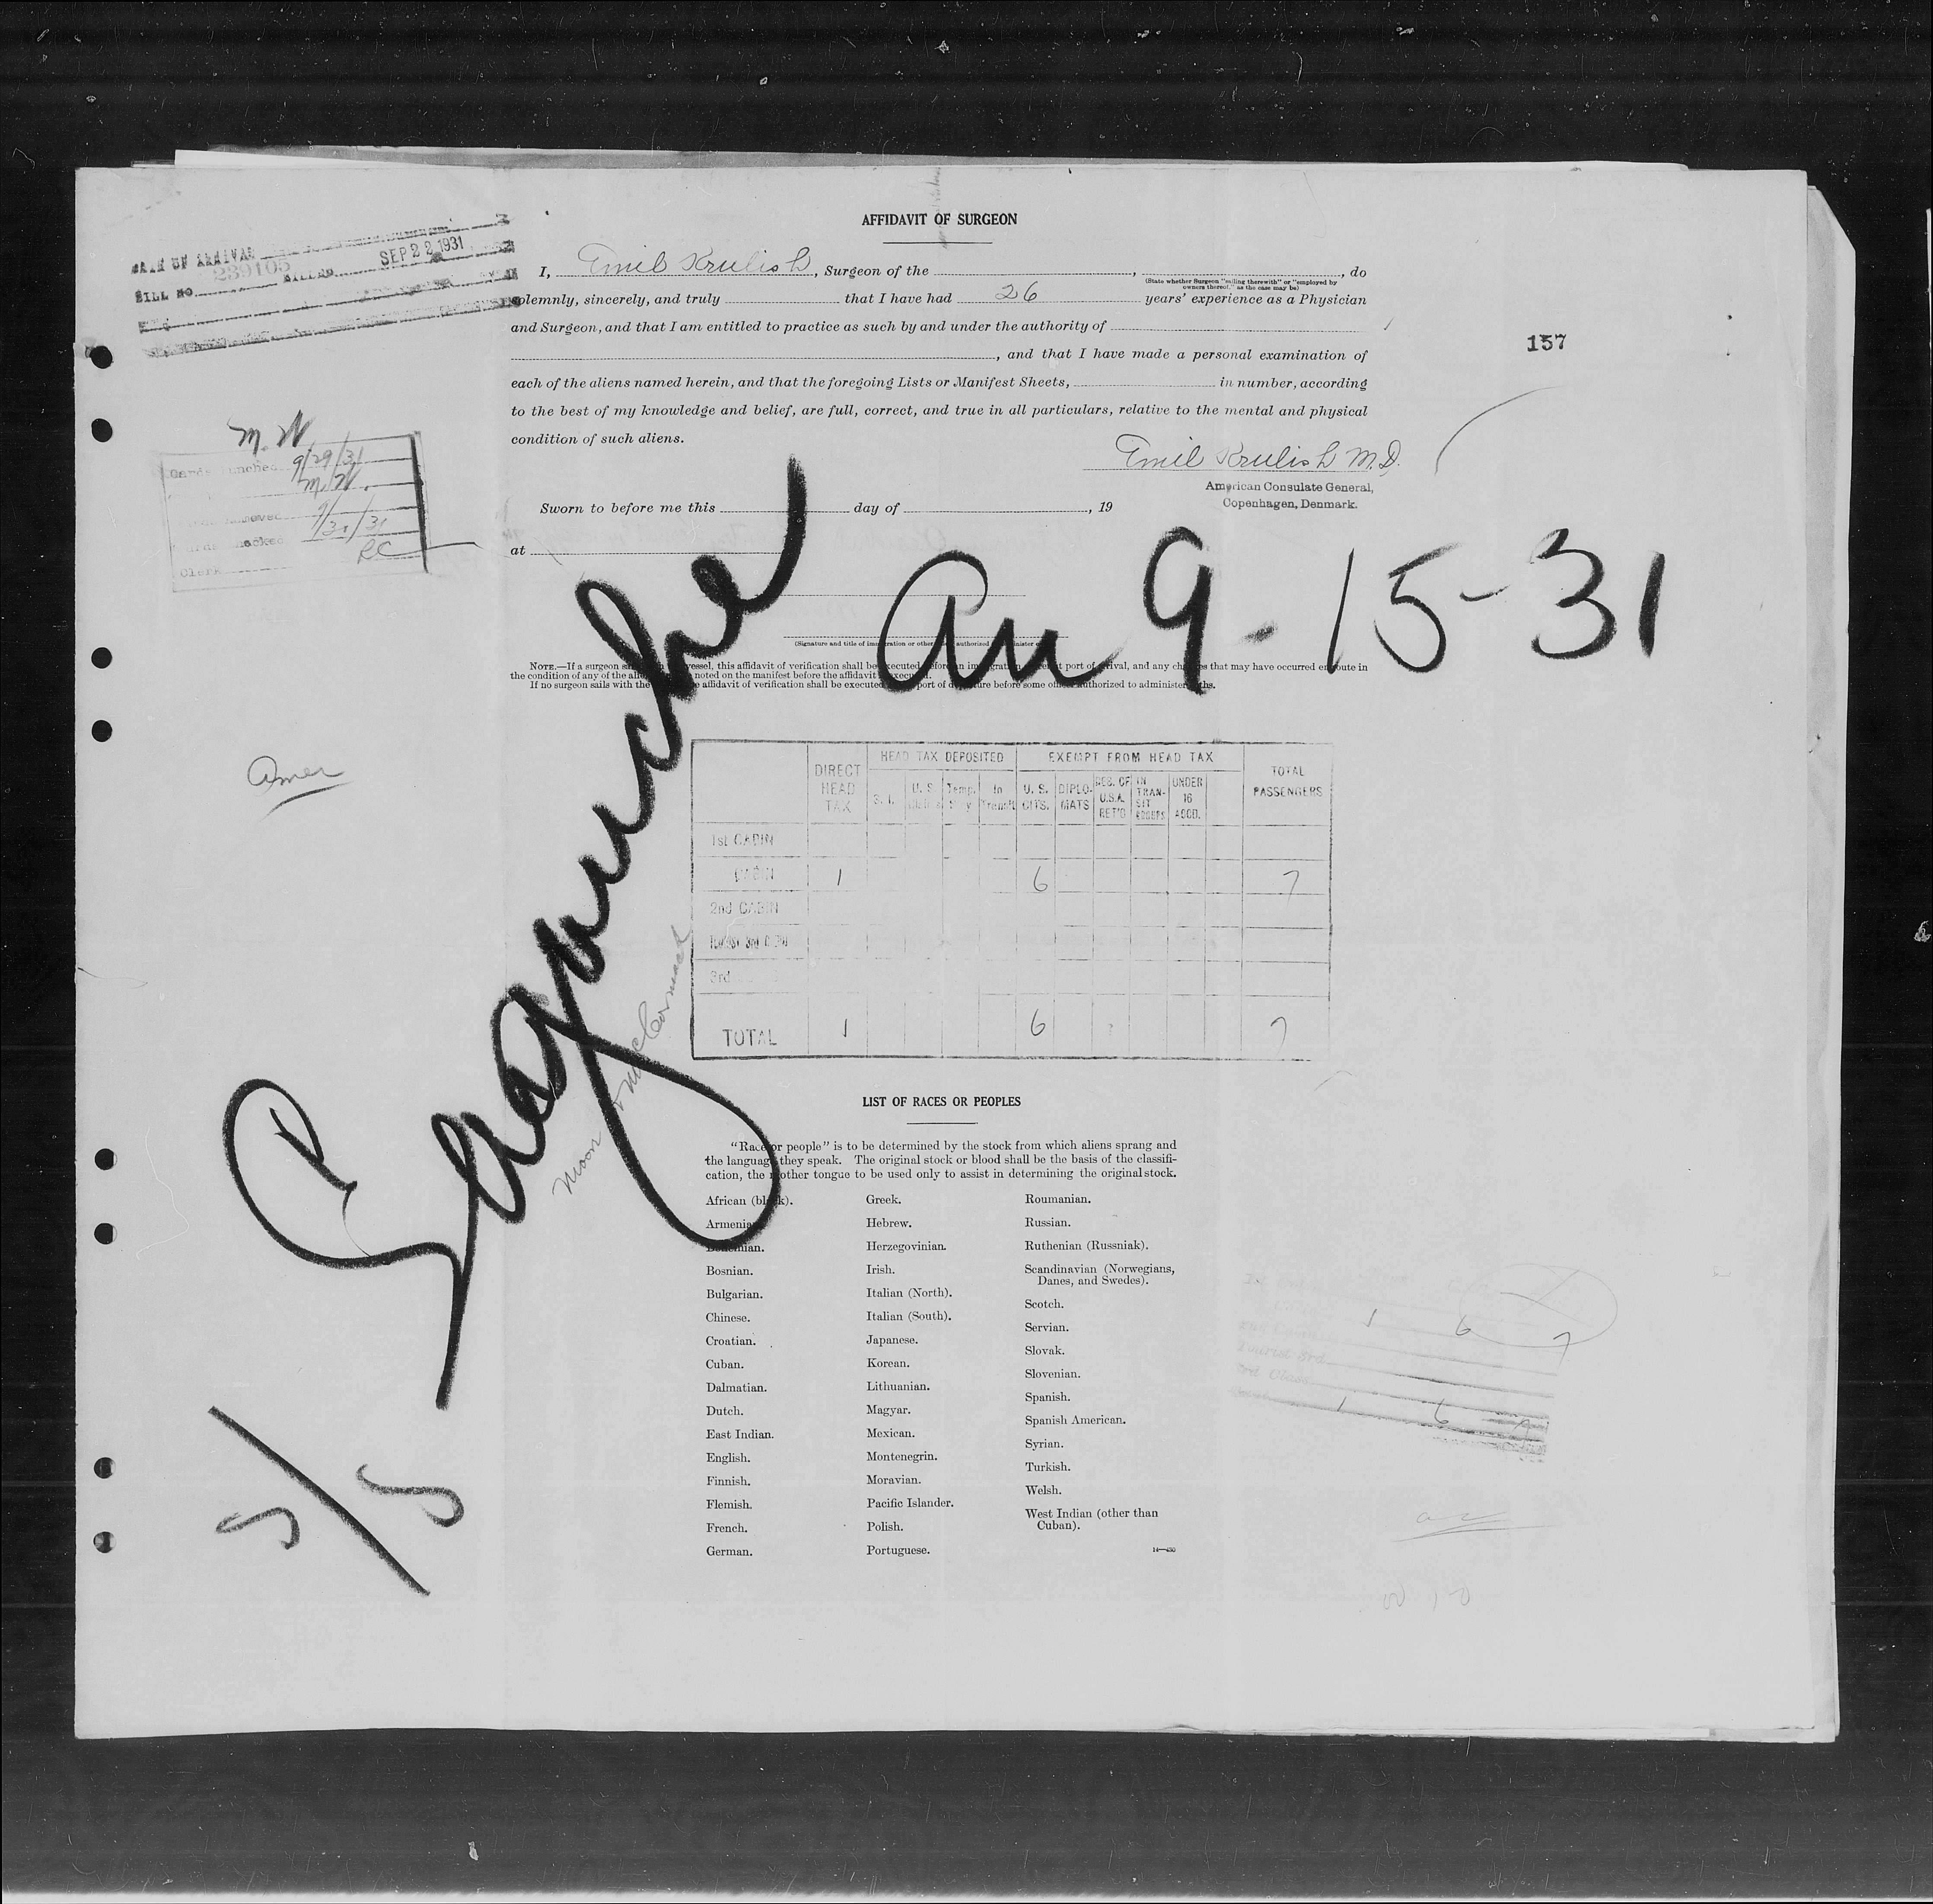 AFFIDAVIT OF SURGEON
DATE OF ARRIVAL
239105
SEP 22 1931
BILL NO. BILLED
I, Emil Krulish, Surgeon of the , , do
(State whether Surgeon "sailing therewith" or "employed by
owners thereof," as the case may be)
solemnly, sincerely, and truly that I have had 26 years' experience as a Physician
and Surgeon, and that I am entitled to practice as such by and under the authority of
, and that I have made a personal examination of
157
each of the aliens named herein, and that the foregoing Lists or Manifest Sheets, in number, according
to the best of my knowledge and belief, are full, correct, and true in all particulars, relative to the mental and physical
condition of such aliens.
Emil Krulish M.D.
American Consulate General,
Copenhagen, Denmark.
M. W
Cards punched 9/29/31
M. W.
RC
Clerk
Sworn to before me this day of , 19
at
Ar 9-15-31
(Signature and title of immigration or other authorized administer
NOTE.—If a surgeon vessel, this affidavit of verification shall be executed before an immigration port of arrival, and any changes that may have occurred en route in
the condition of any of the noted on the manifest before the affidavit executed.
If no surgeon sails with the affidavit of verification shall be executed port of departure before some officer authorized to administer oaths.
Amer
HEAD TAX DEPOSITED EXEMPT FROM HEAD TAX
DIRECT HEAD TAX S. I. U. S. Temp. Stay In Transit U. S. CITS. DIPLOMATS RES. OF U.S.A. RET'D IN TRANSIT UNDER 16 ACCD. TOTAL PASSENGERS
1st CABIN
CABIN 1 6 7
2nd CABIN
3rd
TOTAL 1 6 7
S/S
Moore & McCormack
LIST OF RACES OR PEOPLES
"Race or people" is to be determined by the stock from which aliens sprang and
the language they speak. The original stock or blood shall be the basis of the classifi-
cation, the mother tongue to be used only to assist in determining the original stock.
African (black).
Armenian.
Bohemian.
Bosnian.
Bulgarian.
Chinese.
Croatian.
Cuban.
Dalmatian.
Dutch.
East Indian.
English.
Finnish.
Flemish.
French.
German.
Greek.
Hebrew.
Herzegovinian.
Irish.
Italian (North).
Italian (South).
Japanese.
Korean.
Lithuanian.
Magyar.
Mexican.
Montenegrin.
Moravian.
Pacific Islander.
Polish.
Portuguese.
Roumanian.
Russian.
Ruthenian (Russniak).
Scandinavian (Norwegians,
Danes, and Swedes).
Scotch.
Servian.
Slovak.
Slovenian.
Spanish.
Spanish American.
Syrian.
Turkish.
Welsh.
West Indian (other than
Cuban).
1 6 7
Tourist 3rd
3rd Class
1 6 7